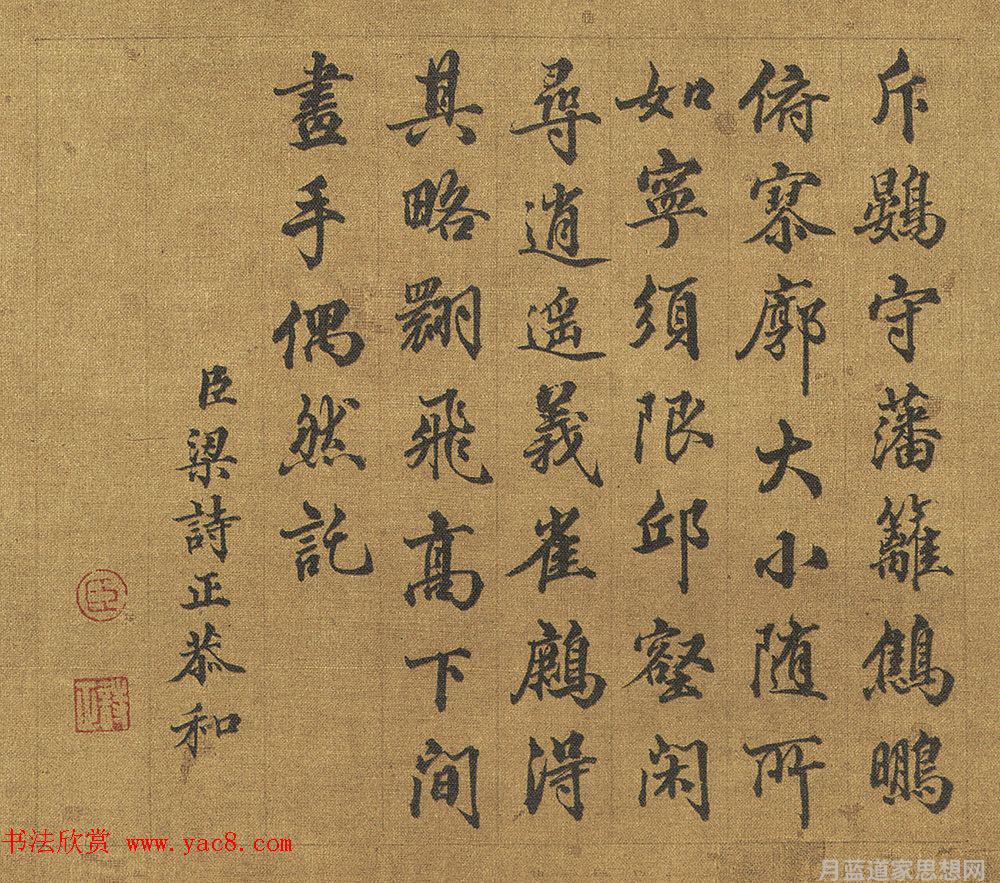 斥鷃守藩籬鷦鵬
俯寥廓大小随所
如寧須限邱壑閑
尋逍遥義雀得
其略翾飛高下間
畫手偶然託
臣梁詩正恭和
臣
书法欣赏 www.yac8.com
月蓝道家思想网